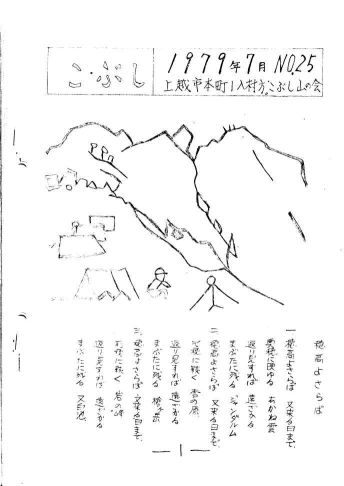 こ・ぶし
1979年7月 NO.25
上越市本町1入村方。こぶし山の会
穂高よさらば
一 穂高よさらば 又来る日まで、
奥穂に映ゆる あかね雲
返り見すれば 遠ざかる
まぶたに残る ジャンダルム
二 穂高よさらば 又来る日まで、
返り見すれば 遠ざかる
まぶたに残る
三 穂高よさらば 又来る日まで、
返り見すれば 遠ざかる
まぶたに残る
—1—